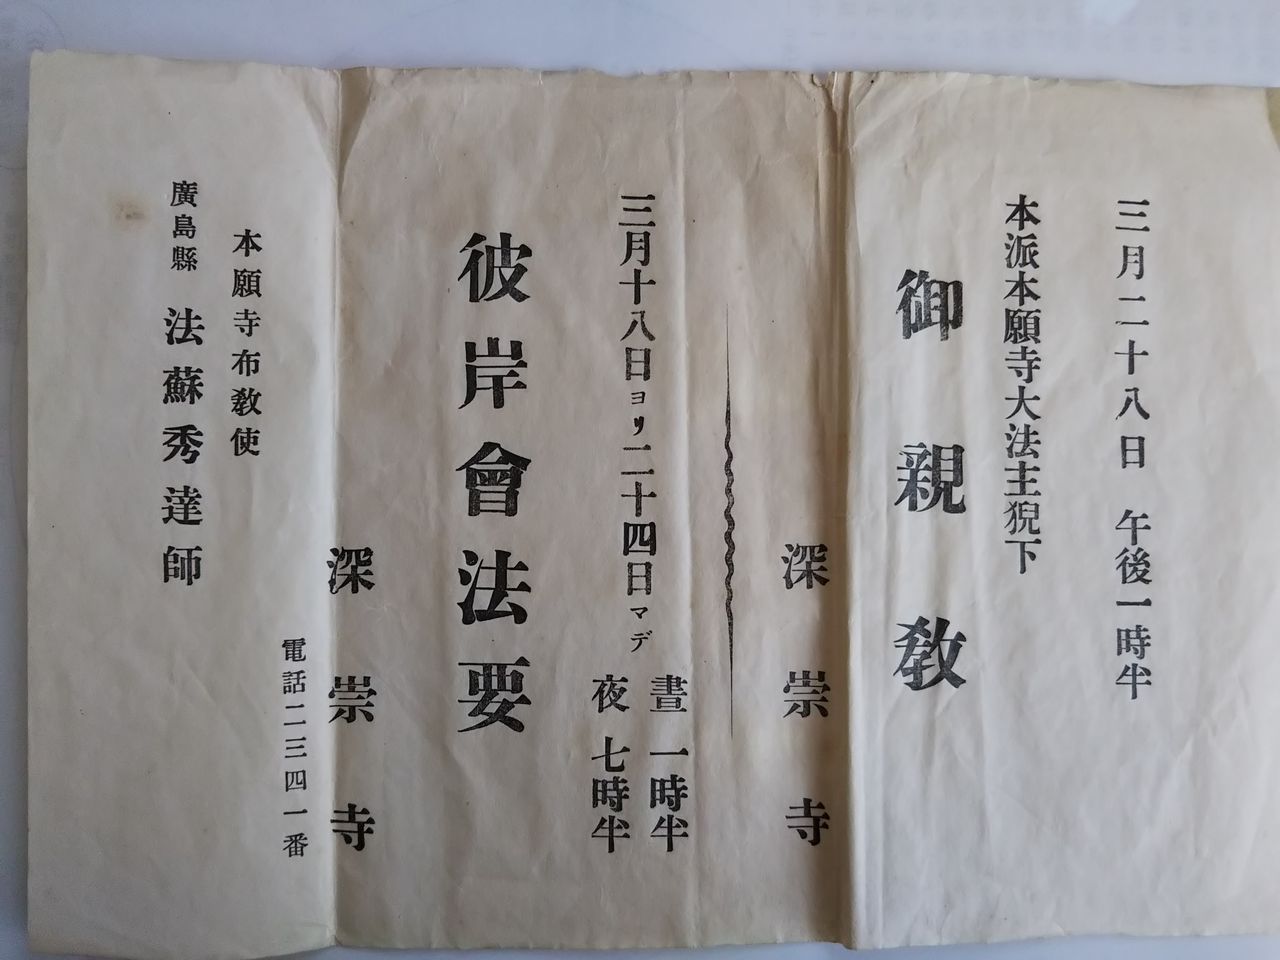 三月二十八日　午後一時半
本派本願寺大法主猊下
御親教
深崇寺
三月十八日ヨリ二十四日マデ
晝　一時半
夜　七時半
彼岸會法要
深崇寺
電話二三四一番
本願寺布教使
廣島縣　法蘇秀達師